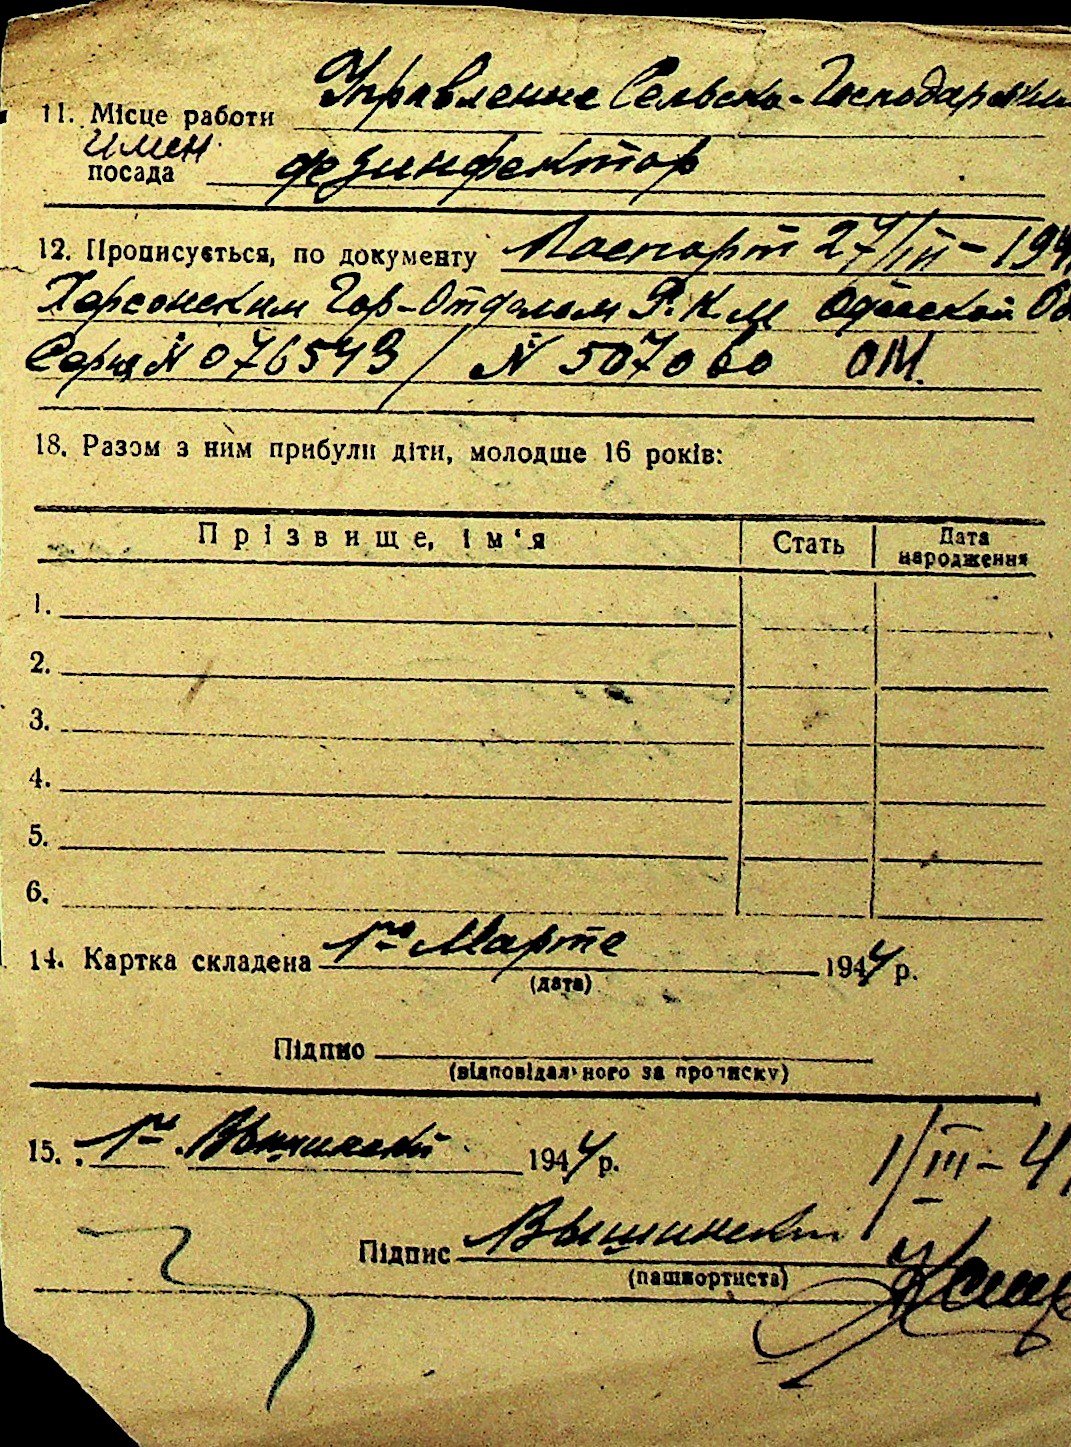 Управление Сельско-Господарским
11. Місце работи
имен.
посада дезинфектор
12. Прописується, по документу Паспорт 27/III-194
Херсонским Гор-Отделом Р.К.М Одесской Об
Серия N 076543/ N 507060 ОМ.
18. Разом з ним прибули діти, молодше 16 років:
Прізвище, ім'я Стать Дата народження
1.
2.
3.
4.
5.
6.
14. Картка складена 1го Марта 1944 р.
(дата)
Підпис
(відповідального за прописку)
15. 1го Вышинский 1944 р. 1/III-4
Підпис Вышинский
(пашпортиста)